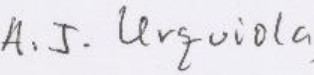 A. J. Urquiola